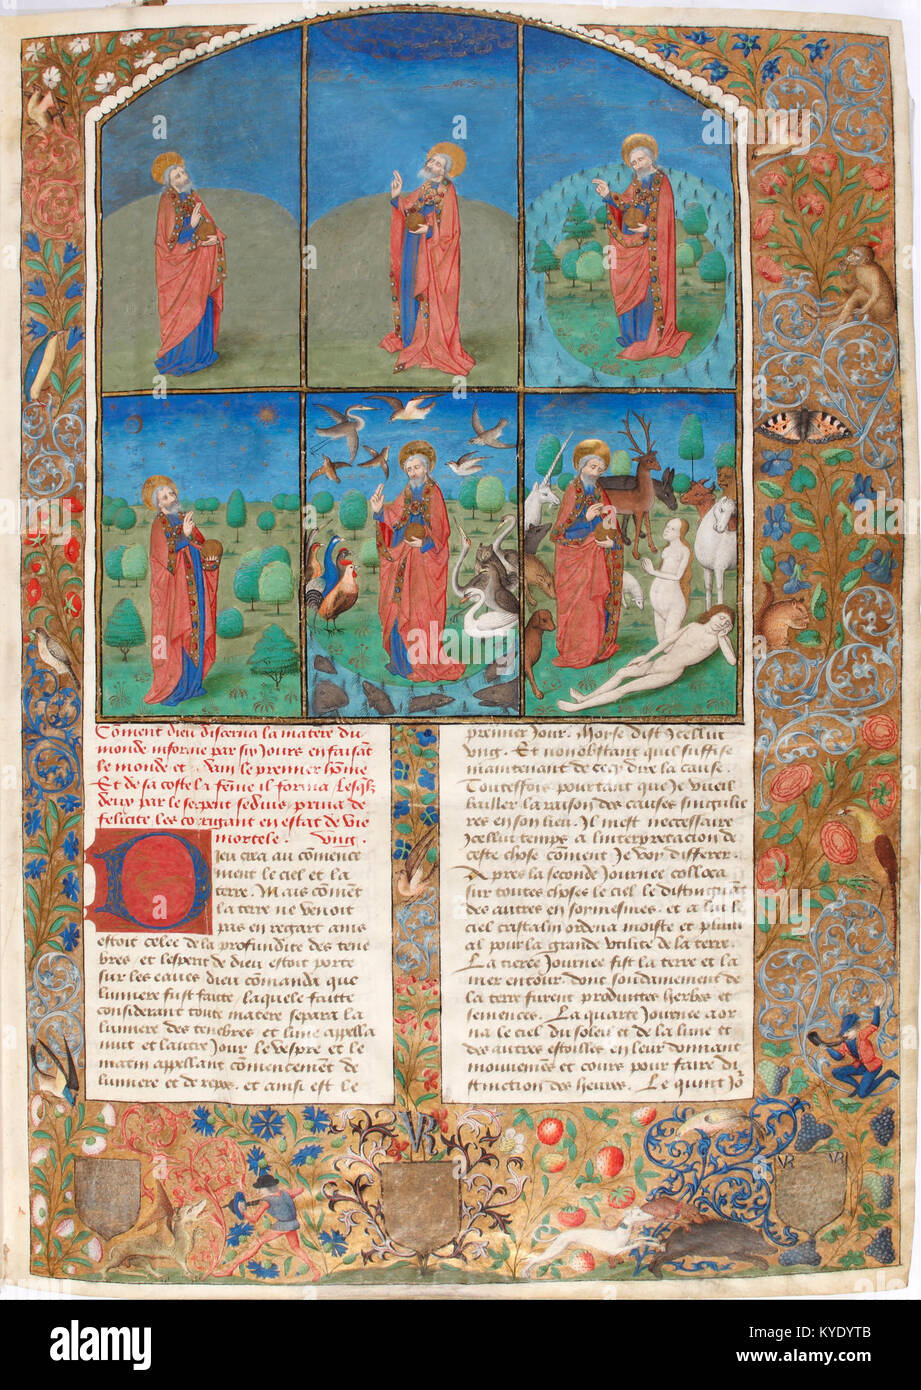 Coment dieu discerna la matere du
monde informe par six Jours en faisāt
le monde et . Van le premier hōme
Et de sa coste la fēme il forma Lesqlz
deux par le serpent seduis priua de
felicite les corrigant en estat de vie
mortele . Vng .
Dieu crea au cōmence
ment le ciel et la
terre . Mais cōmēt
la terre ne venoit
pas en regart ains
estoit celee de la profundite des tene
bres et lesperit de dieu estoit porte
sur les eaues dieu cōmanda que
lumiere fust faitte , laquele faitte
considerant toute matere separa la
lumiere des tenebres et lune appella
nuit et lautre Jour le vespre et le
matin appellant cōmencemēt de
lumiere et de repos . et ainsi est le
premier Jour . Moyse dist Icellui
vng . Et nonobstant quil suffise
maintenant de cecy dire la cause .
Touteffois pourtant que Je vueil
bailler la raison des causes singulie
res en son lieu . Il mest necessaire
Icellui temps a linterpretacion de
ceste chose cōment Je voy differer .
Apres la seconde Journee colloca
sur toutes choses le ciel le distinguāt
des autres en soymesmes . et a lui le
ciel cristalin ordena moiste et pluui
al pour la grande vtilite de la terre .
La tierce Journee fist la terre et la
mer entour . dont soudainement de
la terre furent produittes herbes et
semences . La quarte Journee aor
na le ciel du soleil et de la lune et
des autres estoilles en leur donnant
mouuemēs et cours pour faire di
stinction des heures . Le quint Jo
VR
VR
VR
alamy
Image ID: KYDYTB
www.alamy.com